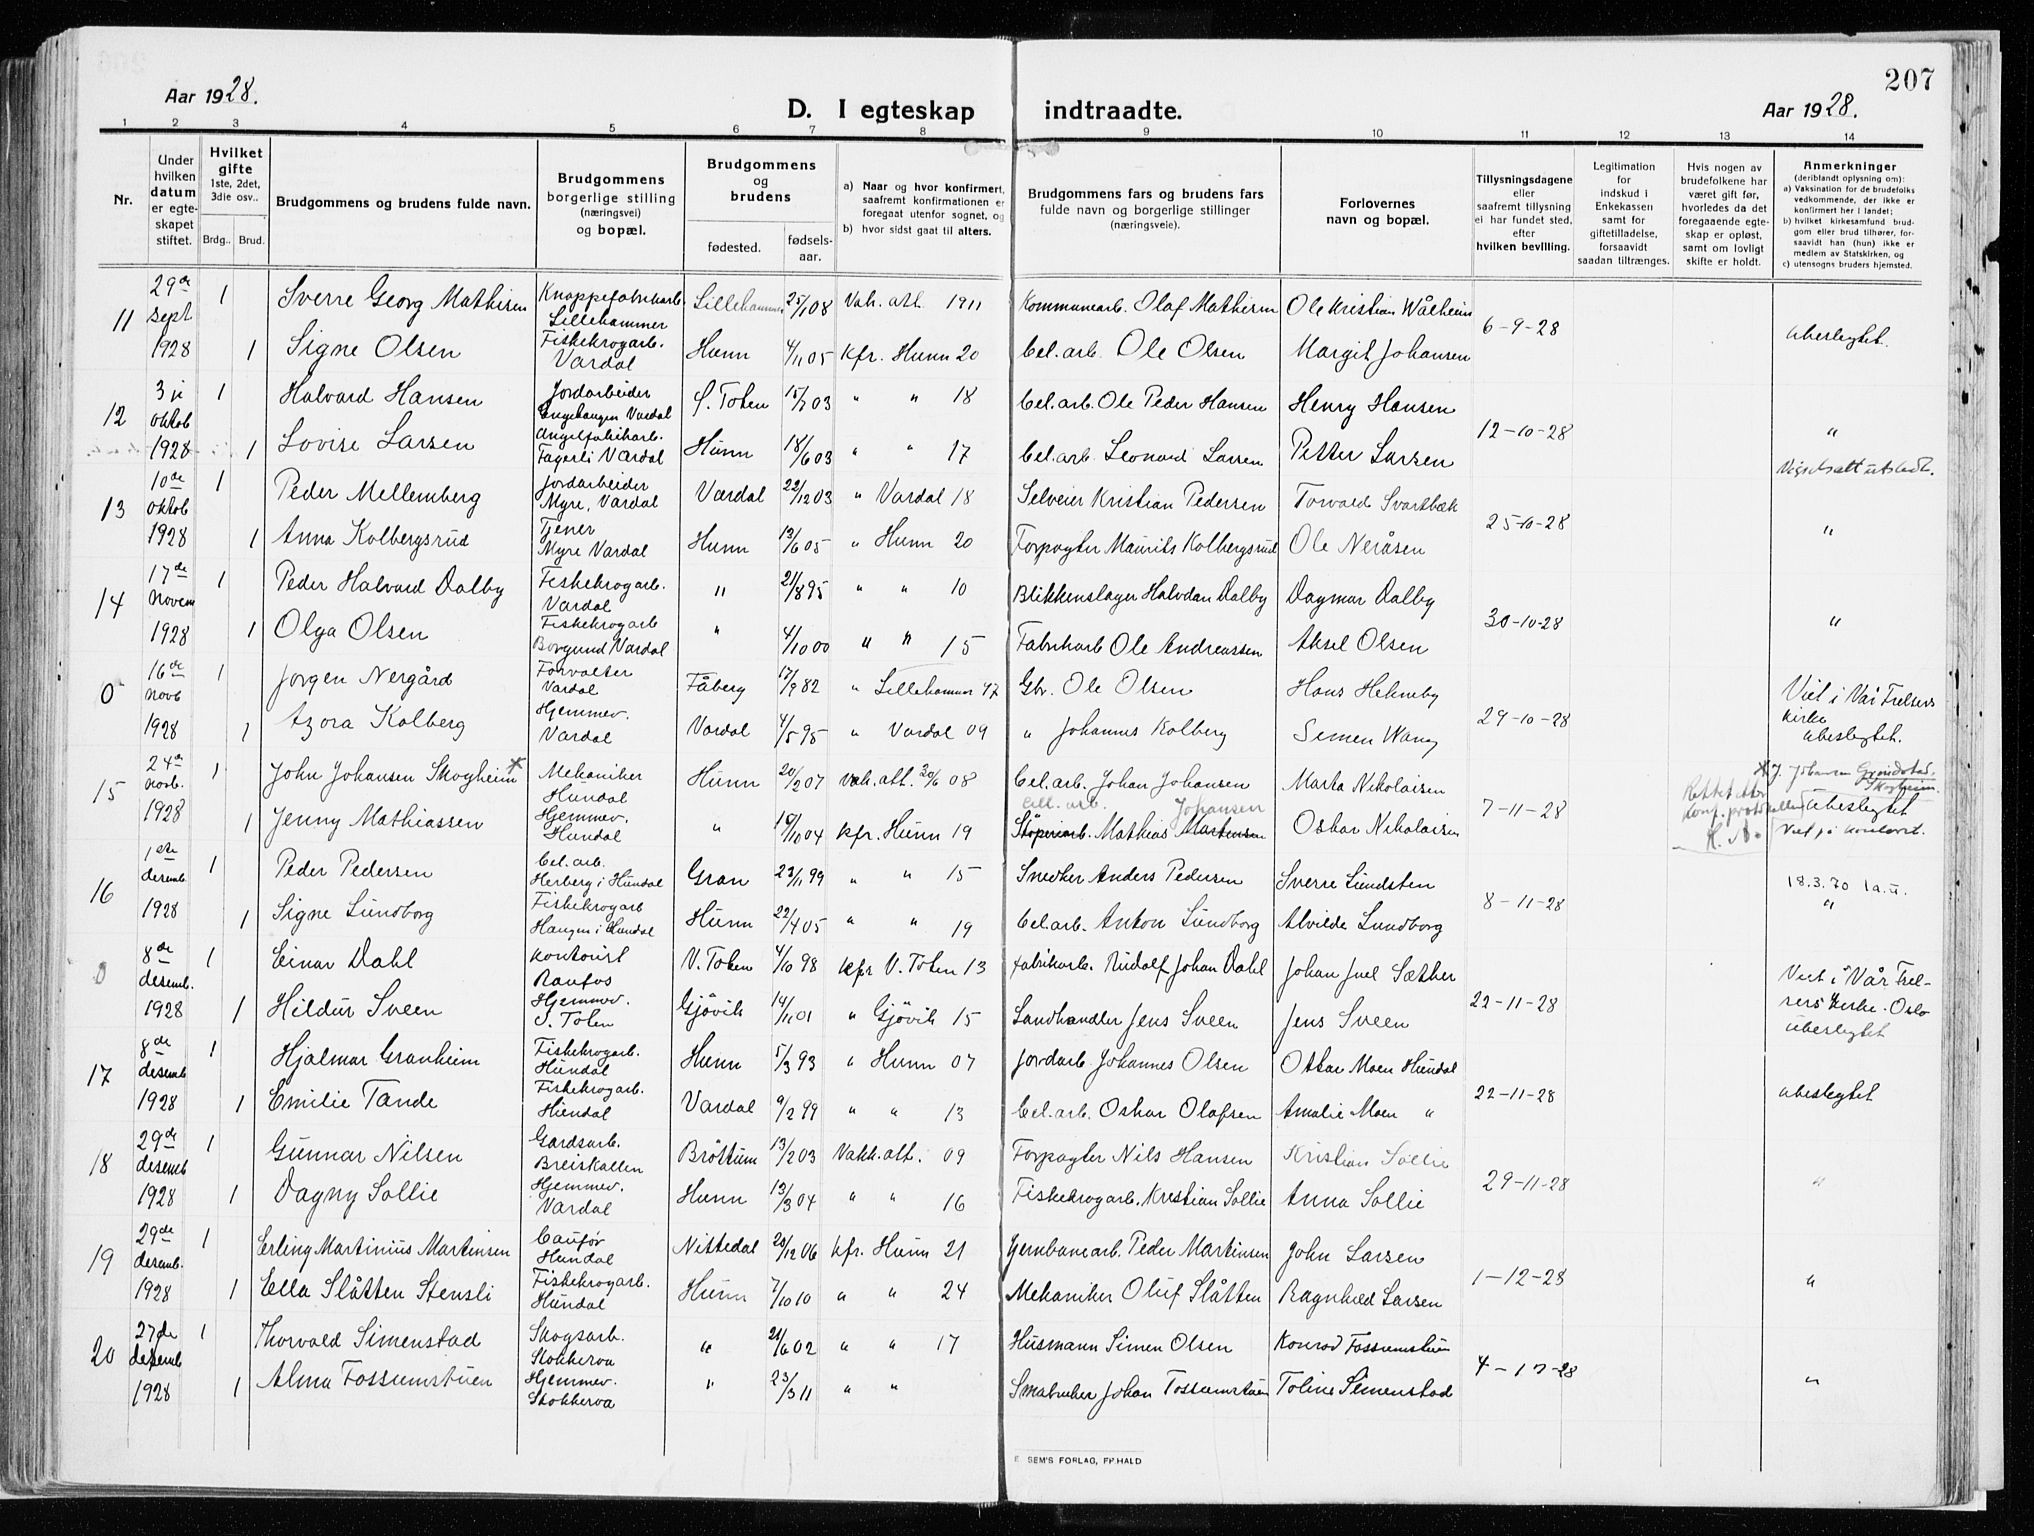 207
Aar 1928.
D. I egteskap indtraadte.
Aar 1928.
1 2 3 4 5 6 7 8 9 10 11 12 13 14
Nr.
Under hvilken datum er egteskapet stiftet.
Hvilket gifte 1ste, 2det, 3die osv..
Brdg.. Brud.
Brudgommens og brudens fulde navn.
Brudgommens borgerlige stilling (næringsvei) og bopæl.
Brudgommens og brudens
fødested. fødsels-aar.
a) Naar og hvor konfirmert, saafremt konfirmationen er foregaat utenfor sognet, og
b) hvor sidst gaat til alters.
Brudgommens fars og brudens fars fulde navn og borgerlige stillinger (næringsveie).
Forlovernes navn og bopæl.
Tillysningsdagene eller saafremt tillysning ei har fundet sted, efter hvilken bevilling.
Legitimation for indskud i Enkekassen samt for giftetilladelse, forsaavidt saadan tiltrænges.
Hvis nogen av brudefolkene har været gift før, hvorledes da det foregaaende egteskap er opløst, samt om lovligt skifte er holdt.
Anmerkninger (deriblandt oplysning om):
a) Vaksination for de brudefolks vedkommende, der ikke er konfirmert her i landet;
b) hvilket kirkesamfund brudgom eller brud tilhører, forsaavidt han (hun) ikke er medlem av Statskirken, og
c) utensogns bruders hjemsted.
11 29de sept 1928 1 Sverre Georg Mathisen Knappefabrikarb. Lillehammer Lillehammer 25/1 08 Vak. att. 1911 Kommunearb. Olaf Mathisen Ole Kristian Wålheim 6-9-28 ubeslegtet.
1 Signe Olsen Fiskekrogarb. Vardal Hunn 4/11 05 kfr. Hunn 20 Cel. arb. Ole Olsen Margit Johansen
12 3je oktob 1928 1 Halvard Hansen Jordarbeider Engehaugen Vardal Ø. Toten 15/7 03 " " 18 Cel. arb. Ole Peder Hansen Henry Hansen 12-10-28 "
1 Lovise Larsen Angelfabrikarb. Fagerli Vardal Hunn 18/6 03 " " 17 Cel. arb. Leonard Larsen Petter Larsen
13 10de oktob 1928 1 Peder Mellemberg Jordarbeider Myre, Vardal Vardal 22/12 03 " Vardal 18 Selveier Kristian Pedersen Torvald Svartbæk 25-10-28 Vigselsatt utstedt. "
1 Anna Kolbergsrud Tjener Myre Vardal Hunn 13/6 05 " Hunn 20 Forpagter Maurits Kolbergsrud Ole Neråsen
14 17de Novem 1928 1 Peder Halvard Dalby Fiskekrogarb. Vardal " 21/8 95 " " 10 Blikkenslager Halvdan Dalby Dagmar Dalby 30-10-28 "
1 Olga Olsen Fiskekrogarb Borgund Vardal " 4/10 00 " " 15 Fabrikarb Ole Andreassen Aksel Olsen
0 16de Novb 1928 1 Jørgen Nergård Forvalter Vardal Fåberg 17/9 82 " Lillehammer 97 Gbr. Ole Olsen Hans Helmeby 29-10-28 Viet i Vår Frelsers kirke ubeslegtet.
1 Azora Kolberg Hjemmev. Vardal Vardal 4/5 95 " Vardal 09 " Johannes Kolberg Simen Wang
15 24de Novb. 1928 1 John Johansen Skogheim x Mekaniker Hundal Hunn 20/2 07 Vak. att. 30/6 08 Cel. arb. Johan Johansen Marta Nikolaisen 7-11-28 x J. Johansen Skogheim. Rettet etter konf. protokollen ubeslegtet Viet på kontoret.
1 Jenny Mathiassen Hjemmev. Hundal " 10/10 04 kfr. Hunn 19 Cell. arb. Støperiarb. Mathias Martinsen Johansen Oskar Nikolaisen
16 1ste desemb. 1928 1 Peder Pedersen Cel. arb. Herberg i Hundal Gran 23/11 99 " " 15 Snedker Anders Pedersen Sverre Lundsten 8-11-28 18.3.70 la.u. "
1 Signe Lundborg Fiskekrogarb Haugen i Hundal Hunn 22/4 05 " " 19 Cel. arb. Anton Lundborg Alvilde Lundborg
0 8de desemb. 1928 1 Einar Dahl Kontorist Raufos V. Toten 4/10 98 kfr V. Toten 13 Fabrikarb. Rudolf Johan Dahl Johan Juel Sæther 22-11-28 Viet i Vår Frelsers Kirke. Oslo ubeslegtet
1 Hildur Sveen Hjemmev. S. Toten Gjøvik 14/11 01 " Gjøvik 15 Landhandler Jens Sveen Jens Sveen
17 8de desemb 1928 1 Hjalmar Granheim Fiskekrogarb. Hundal Hunn 5/3 93 " Hunn 07 Jordarb Johannes Olsen Ottar Moen Hundal 22-11-28 ubeslegtet
1 Emilie Tande Fiskekrogarb. Hundal Vardal 9/2 99 " " 13 Cel. arb. Oskar Olafsen Amalie Moen "
18 29de desemb 1928 1 Gunnar Nilsen Gardsarb. Breiskallen Brøttum 13/2 03 Vakk. att. 09 Forpagter Nils Hansen Kristian Sollie 29-11-28 "
1 Dagny Sollie Hjemmev. Vardal Hunn 13/3 04 " " 16 Fiskekrogarb. Kristian Sollie Anna Sollie
19 29de desemb. 1928 1 Erling Martinius Martinsen Hundal Nittedal 20/12 06 kfr. Hunn 21 Jernbanearb. Peder Martinsen John Larsen 1-12-28 "
1 Ella Slåtten Stensli Fiskekrogarb. Hundal Hunn 7/10 10 " " 24 Mekaniker Oluf Slåtten Ragnhild Larsen
20 27de desemb 1928 1 Thorvald Simenstad Skogsarb. Stokkeroa " 21/6 02 " " 17 Husmann Simen Olsen Konrad Fossumstuen 4-12-28 "
1 Alma Fossumstuen Hjemmev. Stokkeroa " 23/3 11 " " Småbruker Johan Fossumstuen Toline Simenstad
SEM'S FORLAG, FR.HALD